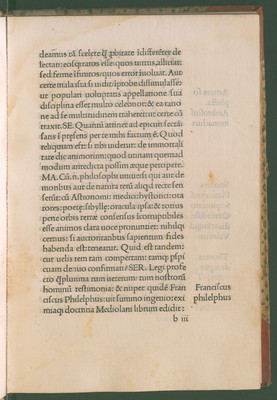 deamus tā scelere q̄ pbitate idifferēter de
lectant: eosqꝫ ratos esse: quos uirtus, alliciat:
sed ferme īfinitos: quos error inoluat. Aut
certe mala ista si uidit: iprobe dissimulasse:
ut populari uoluptatis appellatione sua
disciplina esset multo celebrior: & ea ratio
ne ad se multitudinem traheret: ut certe cō
traxit. SE. Quantū attinet ad epicuri sectā:
sans ī pręsens per te mihi factum: & Quod
reliquum est: si tibi uidetur: de immortali
tate dic animorum: quod utinam quemad
modum antedicta possim æque percipere.
MA. Cū .n. philosophi uniuersi qui aut de
moribus aut de natura rerū aliqd recte sen
serūt: cū Astronomi: medici: hystorici: ora
tores: poetę: sibyllę: oracula ipsa: & totus
pene orbis terræ consensus icorruptibiles
esse animos clara uoce pronuntiet: nihilqꝫ
certius: si auctoritatibus sapientum fides
habenda est: teneatur. Quid est tandem:
cur uelis rem tam compertam: tamqꝫ pspi
cuam denuo confirmari? SER. Legi profe
cto q̄plurima tum ueterum: tum nostrorū
hominū testimonia: & nuper quidē Fran
ciscus Philelphus: uir summo ingenio: exi
miaqꝫ doctrina Mediolani librum edidit:
Franciscus
philelphus
b iii